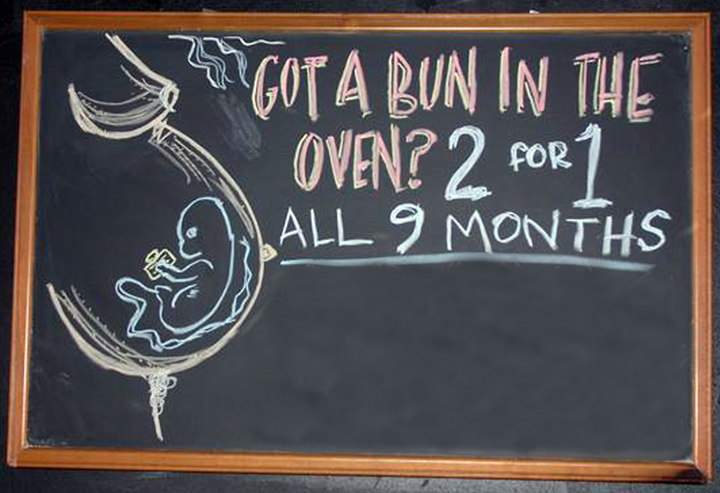 GOT A BUN IN THE
OVEN? 2 FOR 1
ALL 9 MONTHS